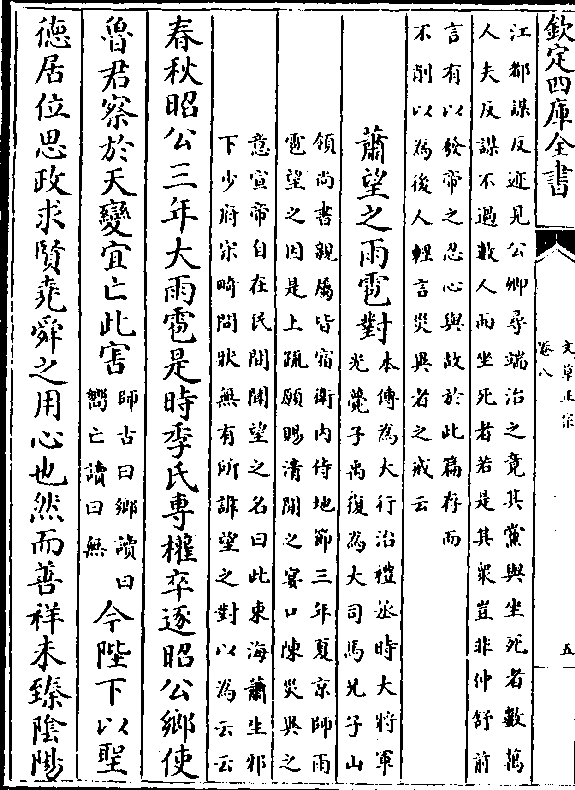 欽定四庫全書
文章正宗
卷八
五
江都謀反迹見公卿尋端治之竟其黨與坐死者數萬
人夫反謀不過數人而坐死者若是其衆豈非仲舒前
言有以發帝之忍心與故於此篇存而
不削以為後人輕言災異者之戒云
蕭望之雨雹對
本傳為大行治禮丞時大將軍
光薨子禹復為大司馬兄子山
領尚書親屬皆宿衛内侍地節三年夏京師雨
雹望之因是上疏願賜清閒之宴口陳災異之
意宣帝自在民間聞望之名曰此東海蕭生邪
下少府宋畸問狀無有所諱望之對以為云云
春秋昭公三年大雨雹是時季氏專權卒逐昭公鄉使
魯君察於天變宜亡此害
師古曰鄉讀曰
嚮亡讀曰無
今陛下以聖
徳居位思政求賢堯舜之用心也然而善祥未臻隂陽